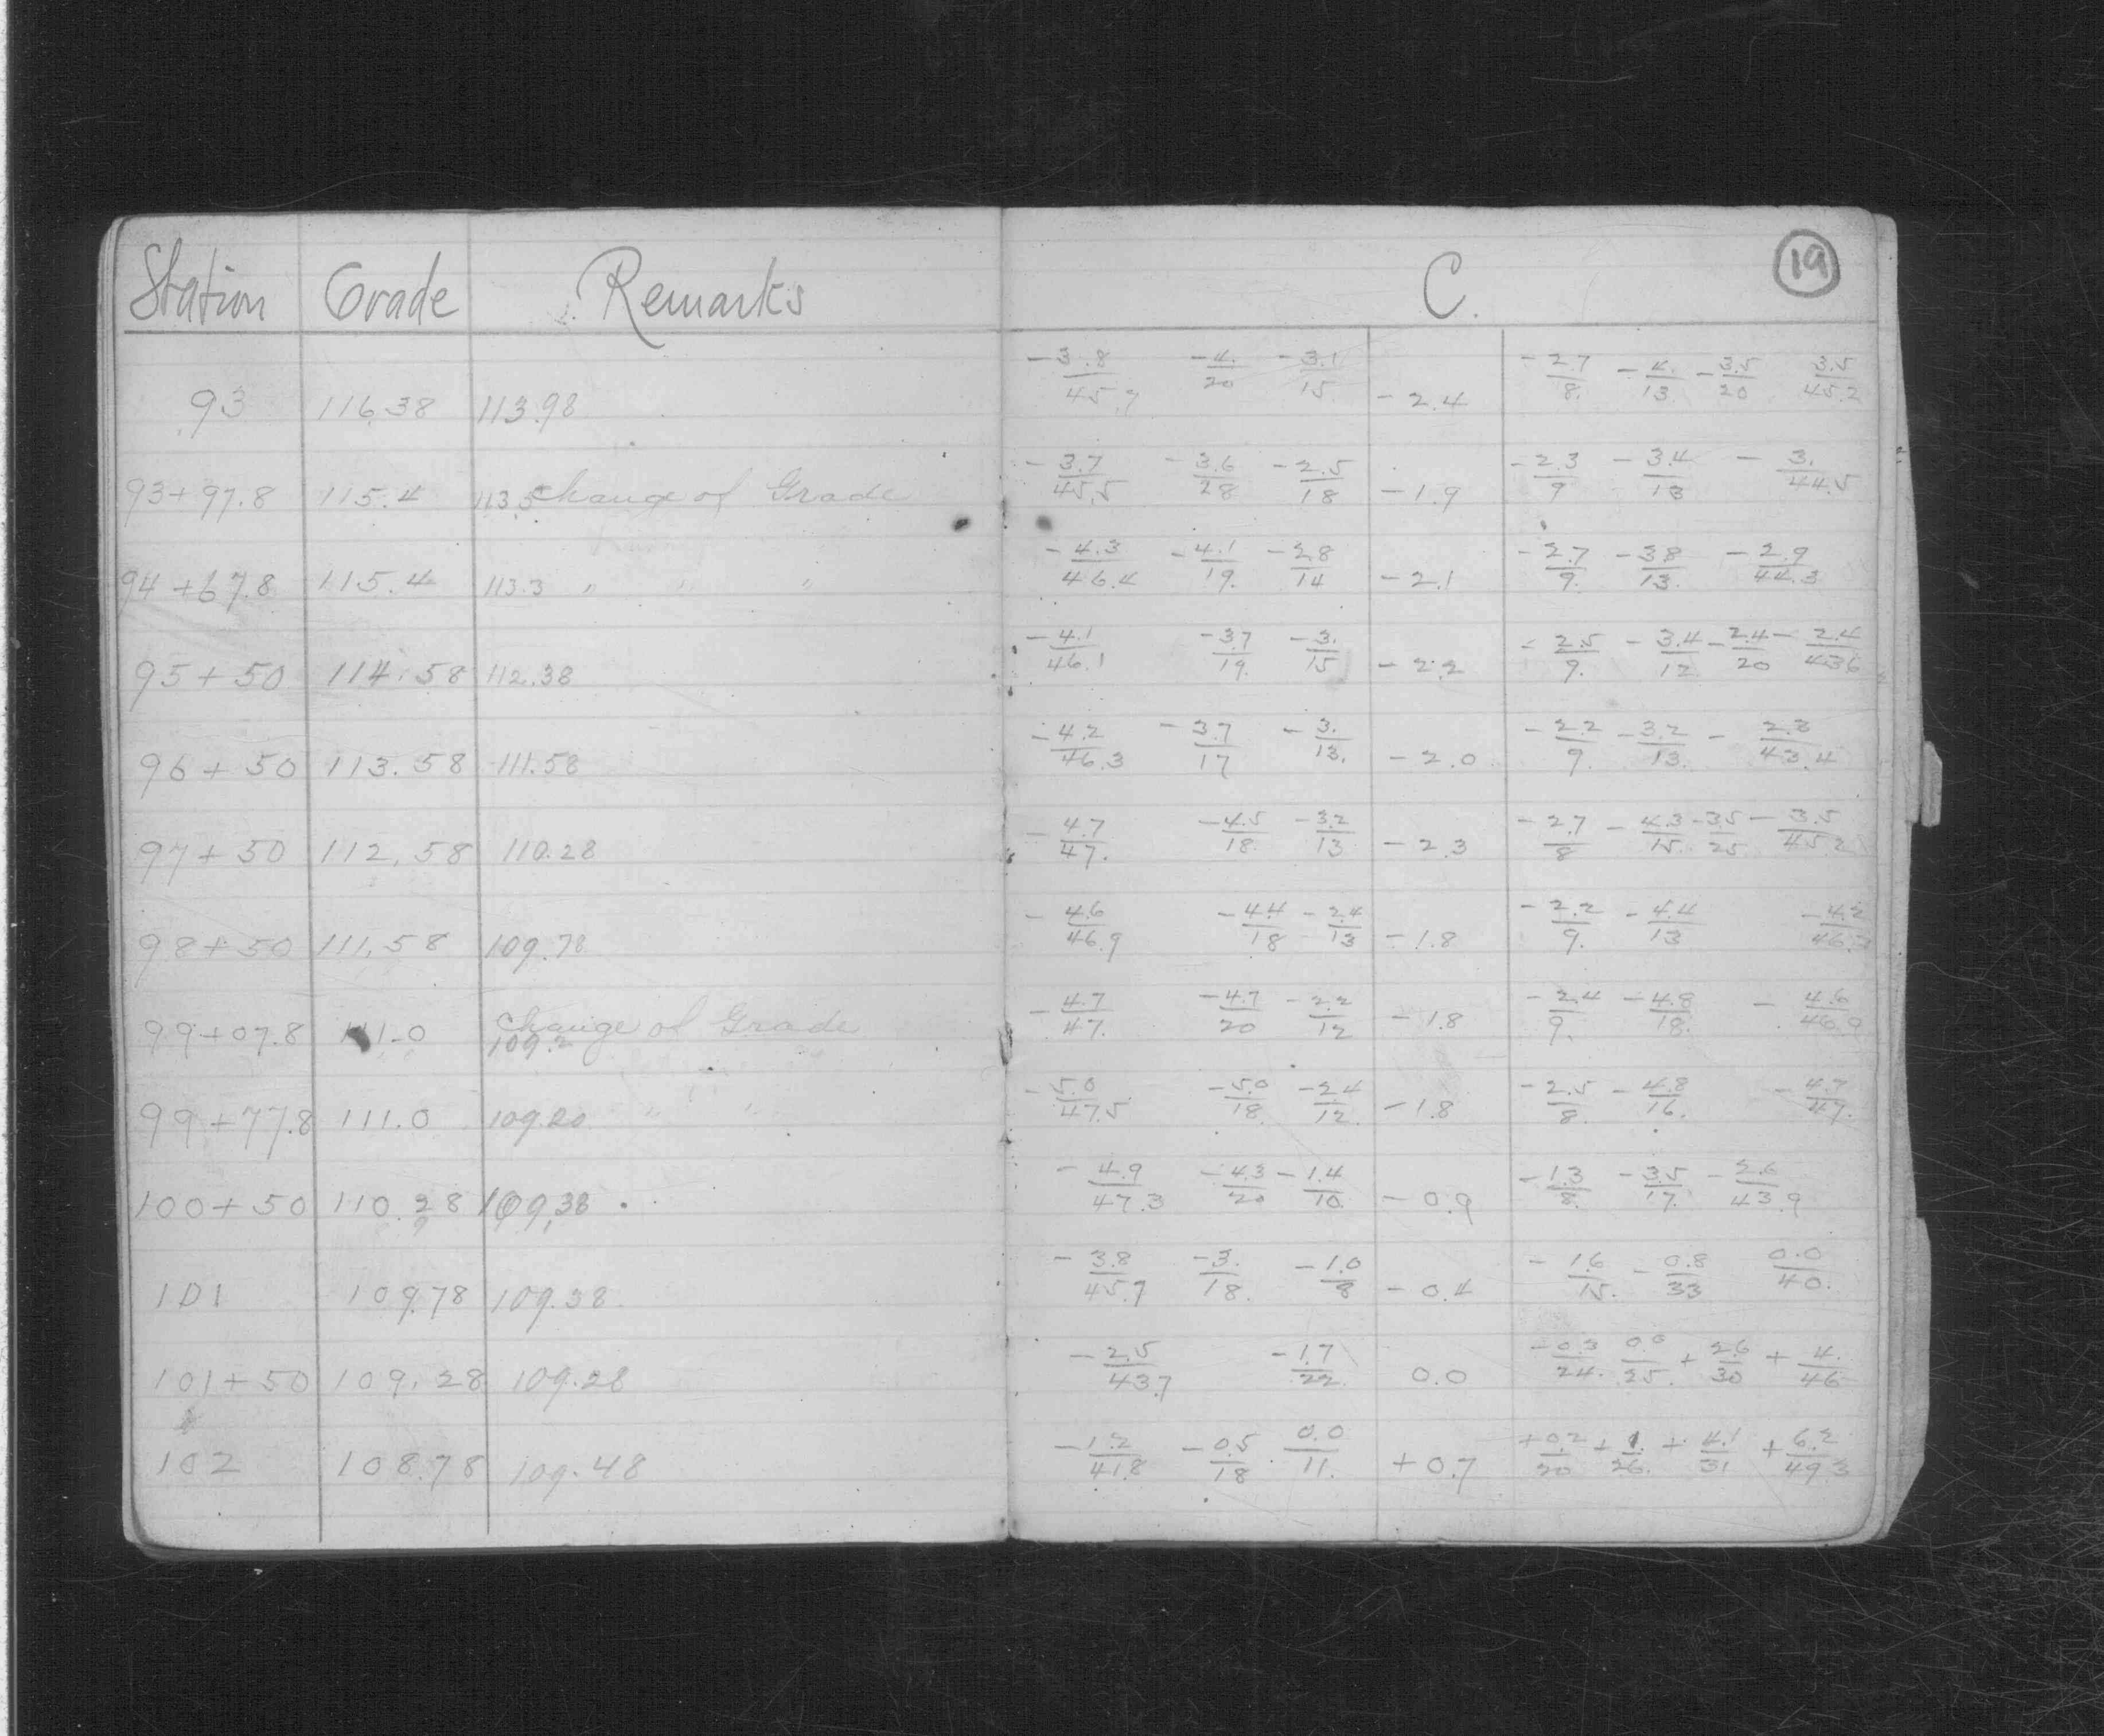 Station Grade Remarks C. 19
93 116.38 113.98 -3.8/45.7 -4./20 -3.1/15 -2.4 -2.7/8. -4./13. -3.5/20 3.5/45.2
93+97.8 115.4 113.5 Change of Grade -3.7/45.5 -3.6/28 -2.5/18 -1.9 -2.3/9 -3.4/13 -3./44.5
94+67.8 115.4 113.3 " " " -4.3/46.4 -4.1/19. -2.8/14 -2.1 -2.7/9. -3.8/13. -2.9/44.3
95+50 114.58 112.38 -4.1/46.1 -3.7/19. -3./15 -2.2 -2.5/9. -3.4/12. -2.4/20 -2.4/43.6
96+50 113.58 111.58 -4.2/46.3 -3.7/17 -3./13. -2.0 -2.2/9. -3.2/13. -2.3/43.4
97+50 112.58 110.28 -4.7/47. -4.5/18. -3.2/13 -2.3 -2.7/8 -4.3/15. -3.5/25 -3.5/45.2
98+50 111.58 109.78 -4.6/46.9 -4.4/18 -2.4/13 -1.8 -2.2/9. -4.4/13 -4.2/
99+07.8 111.0 Change of Grade 109.2 -4.7/47. -4.7/20 -2.2/12 -1.8 -2.4/9. -4.8/18. -4.6/46.9
99+77.8 111.0 109.20 " " -5.0/47.5 -5.0/18. -2.4/12. -1.8 -2.5/8. -4.8/16. -4.7/47.
100+50 110.28 109.38 -4.9/47.3 -4.3/20 -1.4/10. -0.9 -1.3/8. -3.5/17. -2.6/43.9
101 109.78 109.38 -3.8/45.7 -3./18. -1.0/8 -0.4 -1.6/15. -0.8/33 0.0/40.
101+50 109.28 109.28 -2.5/43.7 -1.7/22. 0.0 -0.3/24. 0.0/25. +2.6/30 +4./46
102 108.78 109.48 -1.2/41.8 -0.5/18 0.0/11. +0.7 +0.2/20 +1./26. +4.1/31 +6.2/49.3